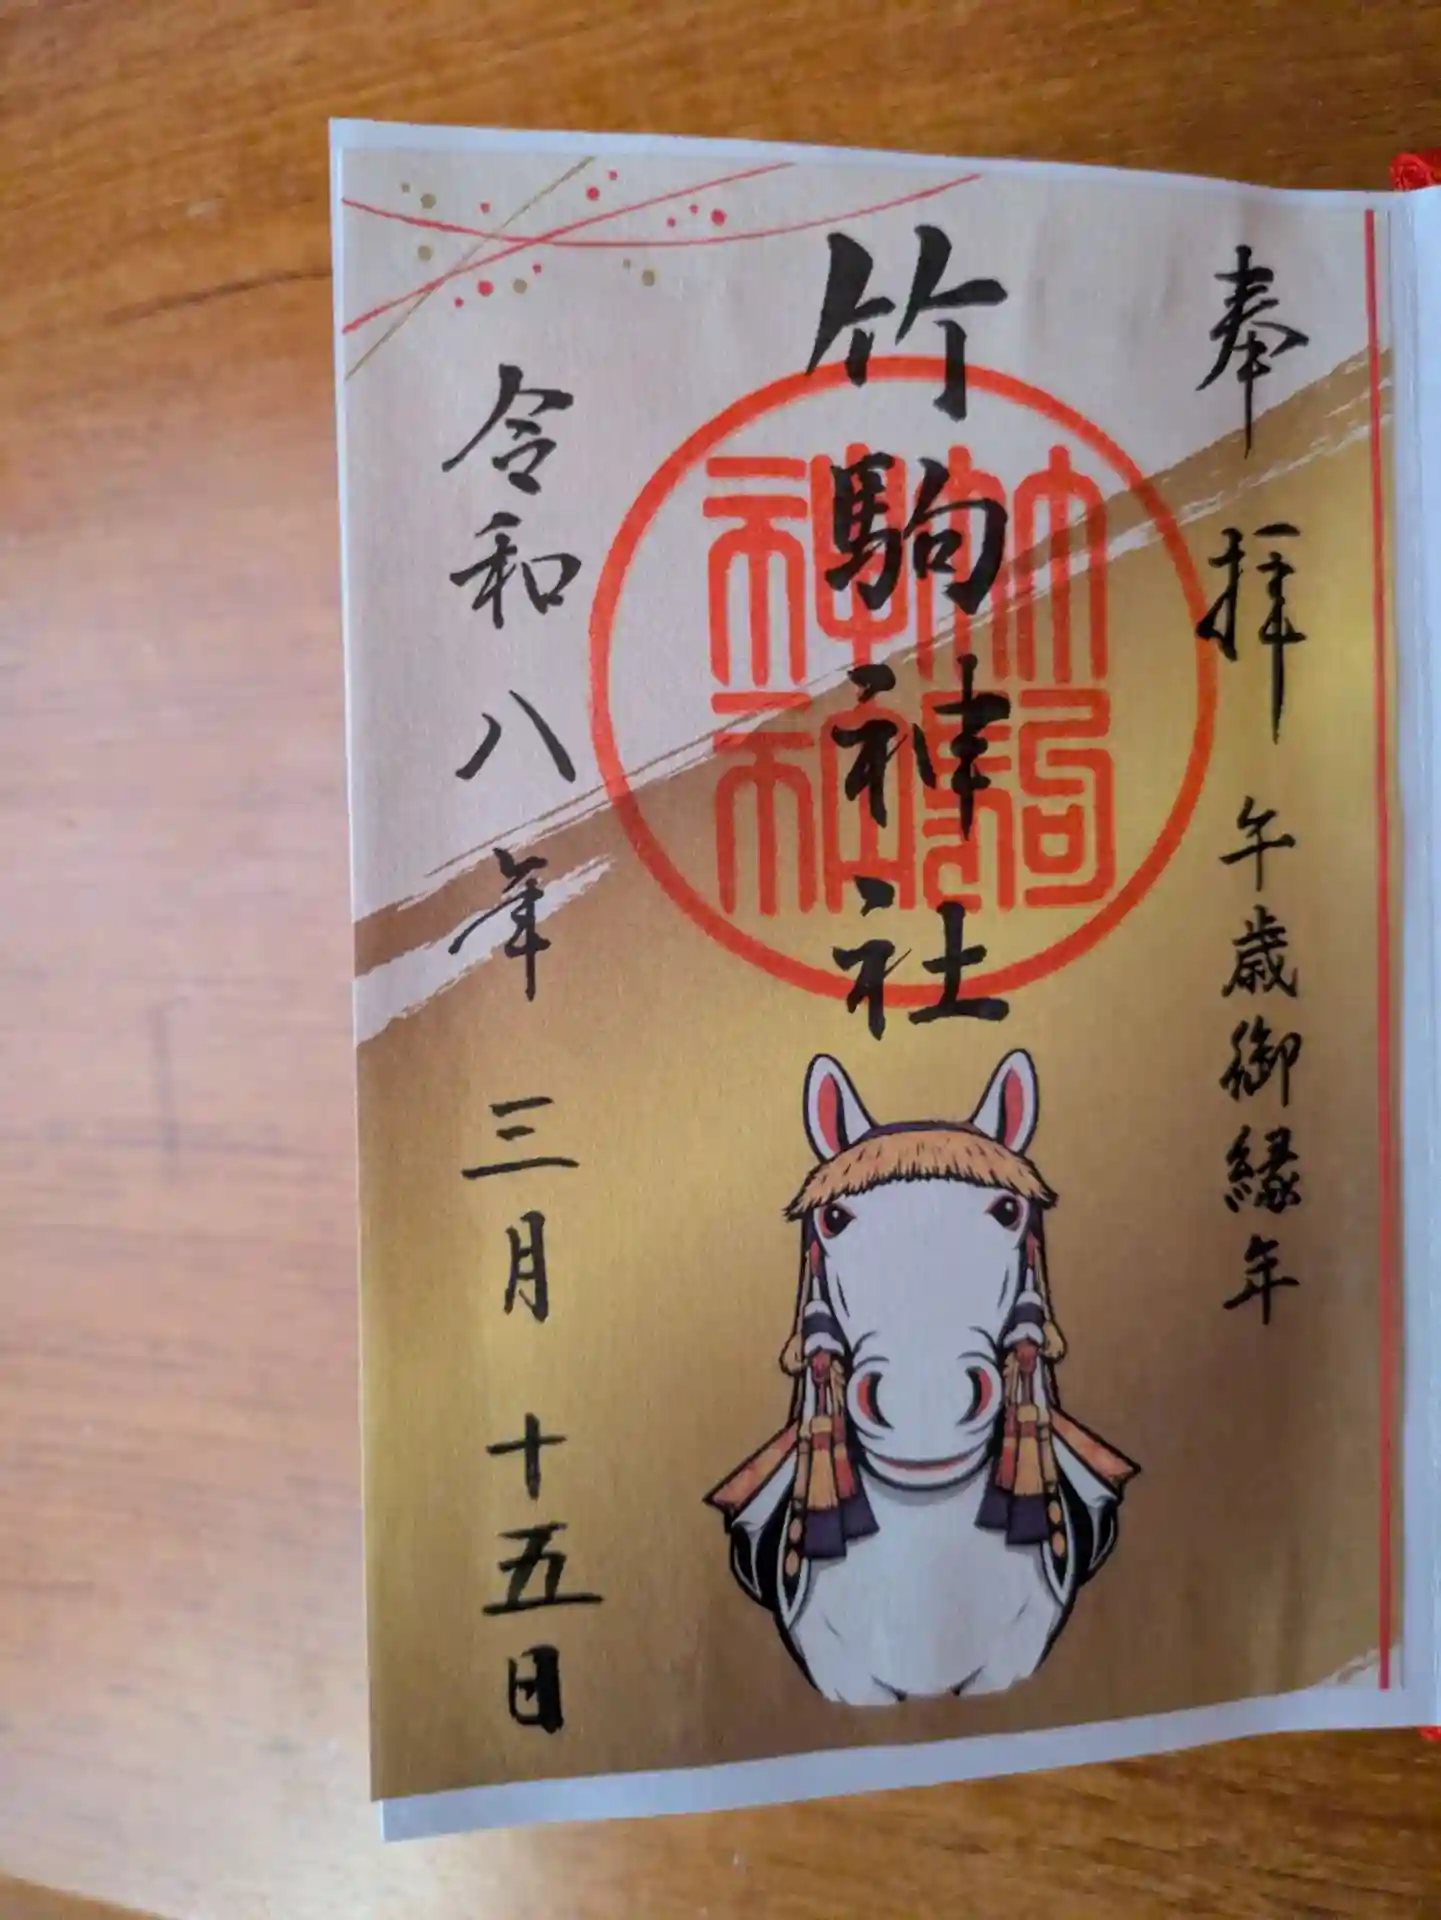 奉拝
午歳御縁年
竹駒神社
竹駒神社
令和八年三月十五日